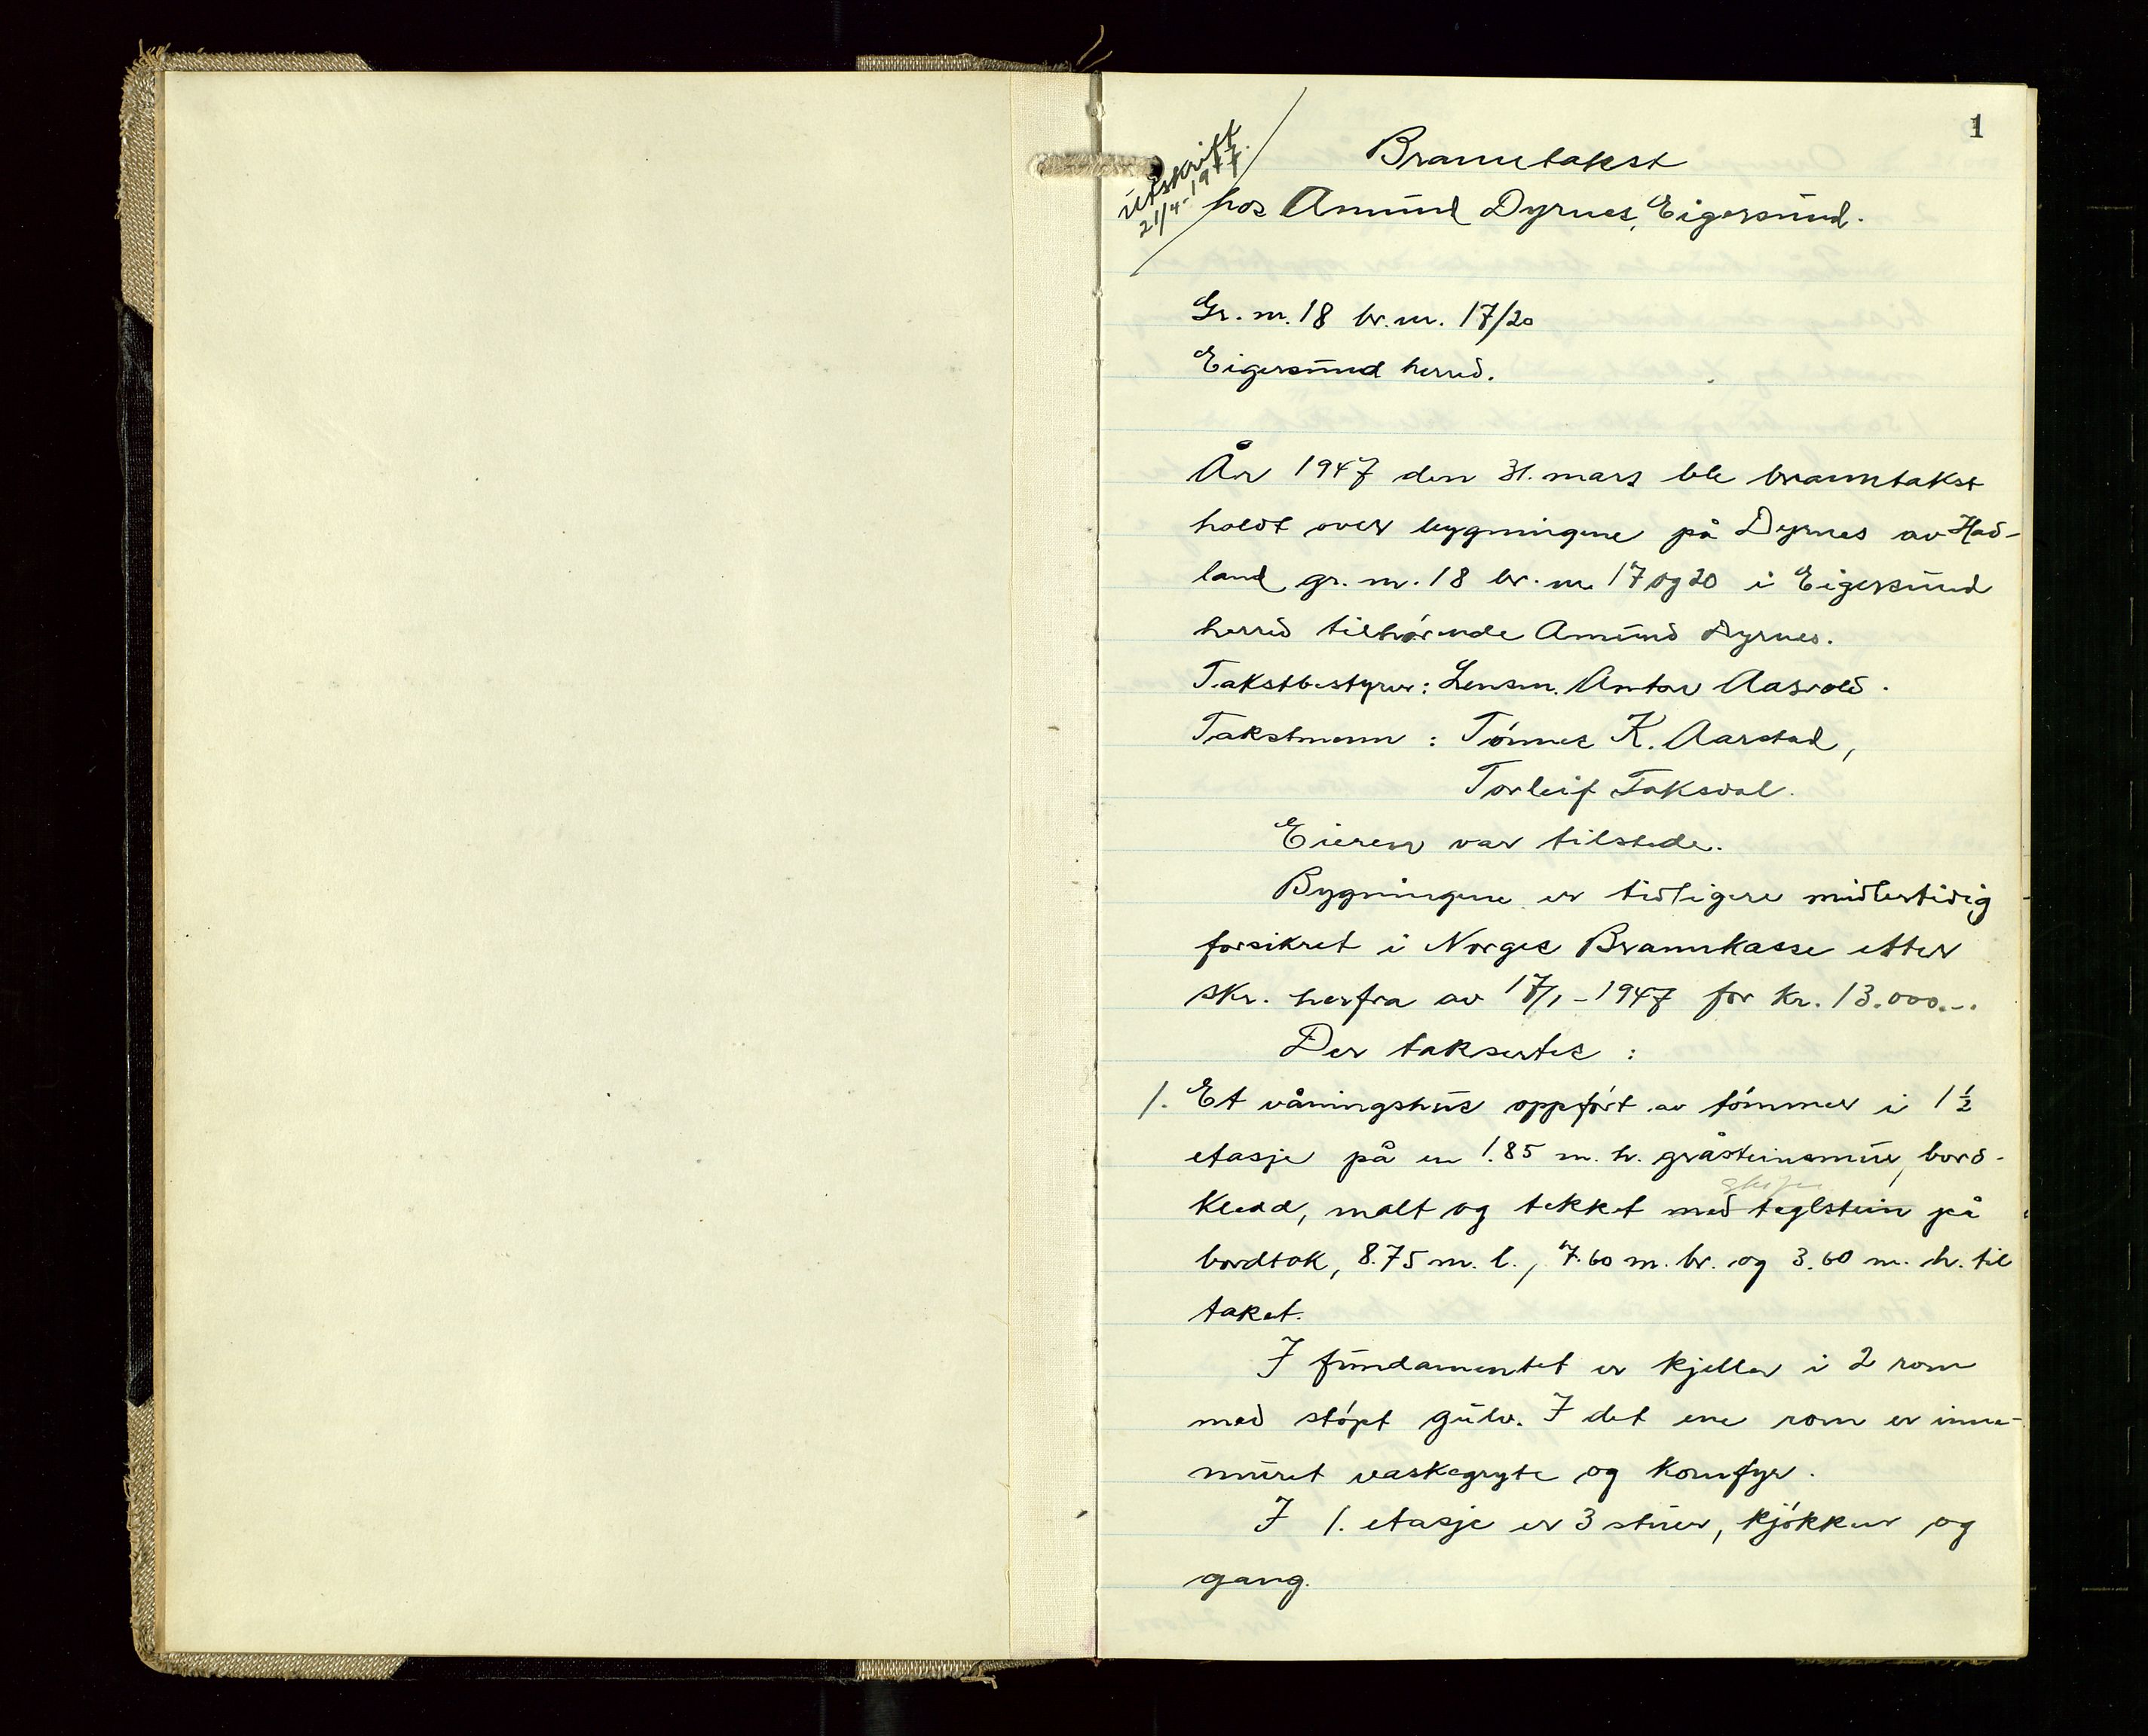 1
utskrift
21/4-1977.
Branntakst
hos Amund Dyrnes, Eigersund.
Gr. nr. 18 br. nr. 17/20
Eigersund herred.
År 1947 den 31. mars ble branntakst
holdt over bygningene på Dyrnes av Had-
land gr. nr. 18 br. nr 17 og 20 i Eigersund
herred tilhørende Amund Dyrnes.
Takstbestyrer: Lensm. Anton Aasvold.
Takstmenn: Tønnes K. Aarstad,
Torleif Taksdal.
Eieren var tilstede.
Bygningene er tidligere midlertidig
forsikret i Norges Brannkasse etter
skr. herfra av 17/1-1947 for kr. 13.000.-.
Der taksertes:
1. Et våningshus oppført av tømmer i 1 1/2
etasje på en 1.85 m. h. gråsteinsmur, bord-
kledd, malt og tekket med teglstein på
bordtak, 8.75 m. l., 7.60 m. br. og 3.60 m. h. til
taket.
I fundamentet er kjeller i 2 rom
med støpt gulv. I det ene rom er inne-
muret vaskegryte og komfyr.
I 1. etasje er 3 stuer, kjøkken og
gang.